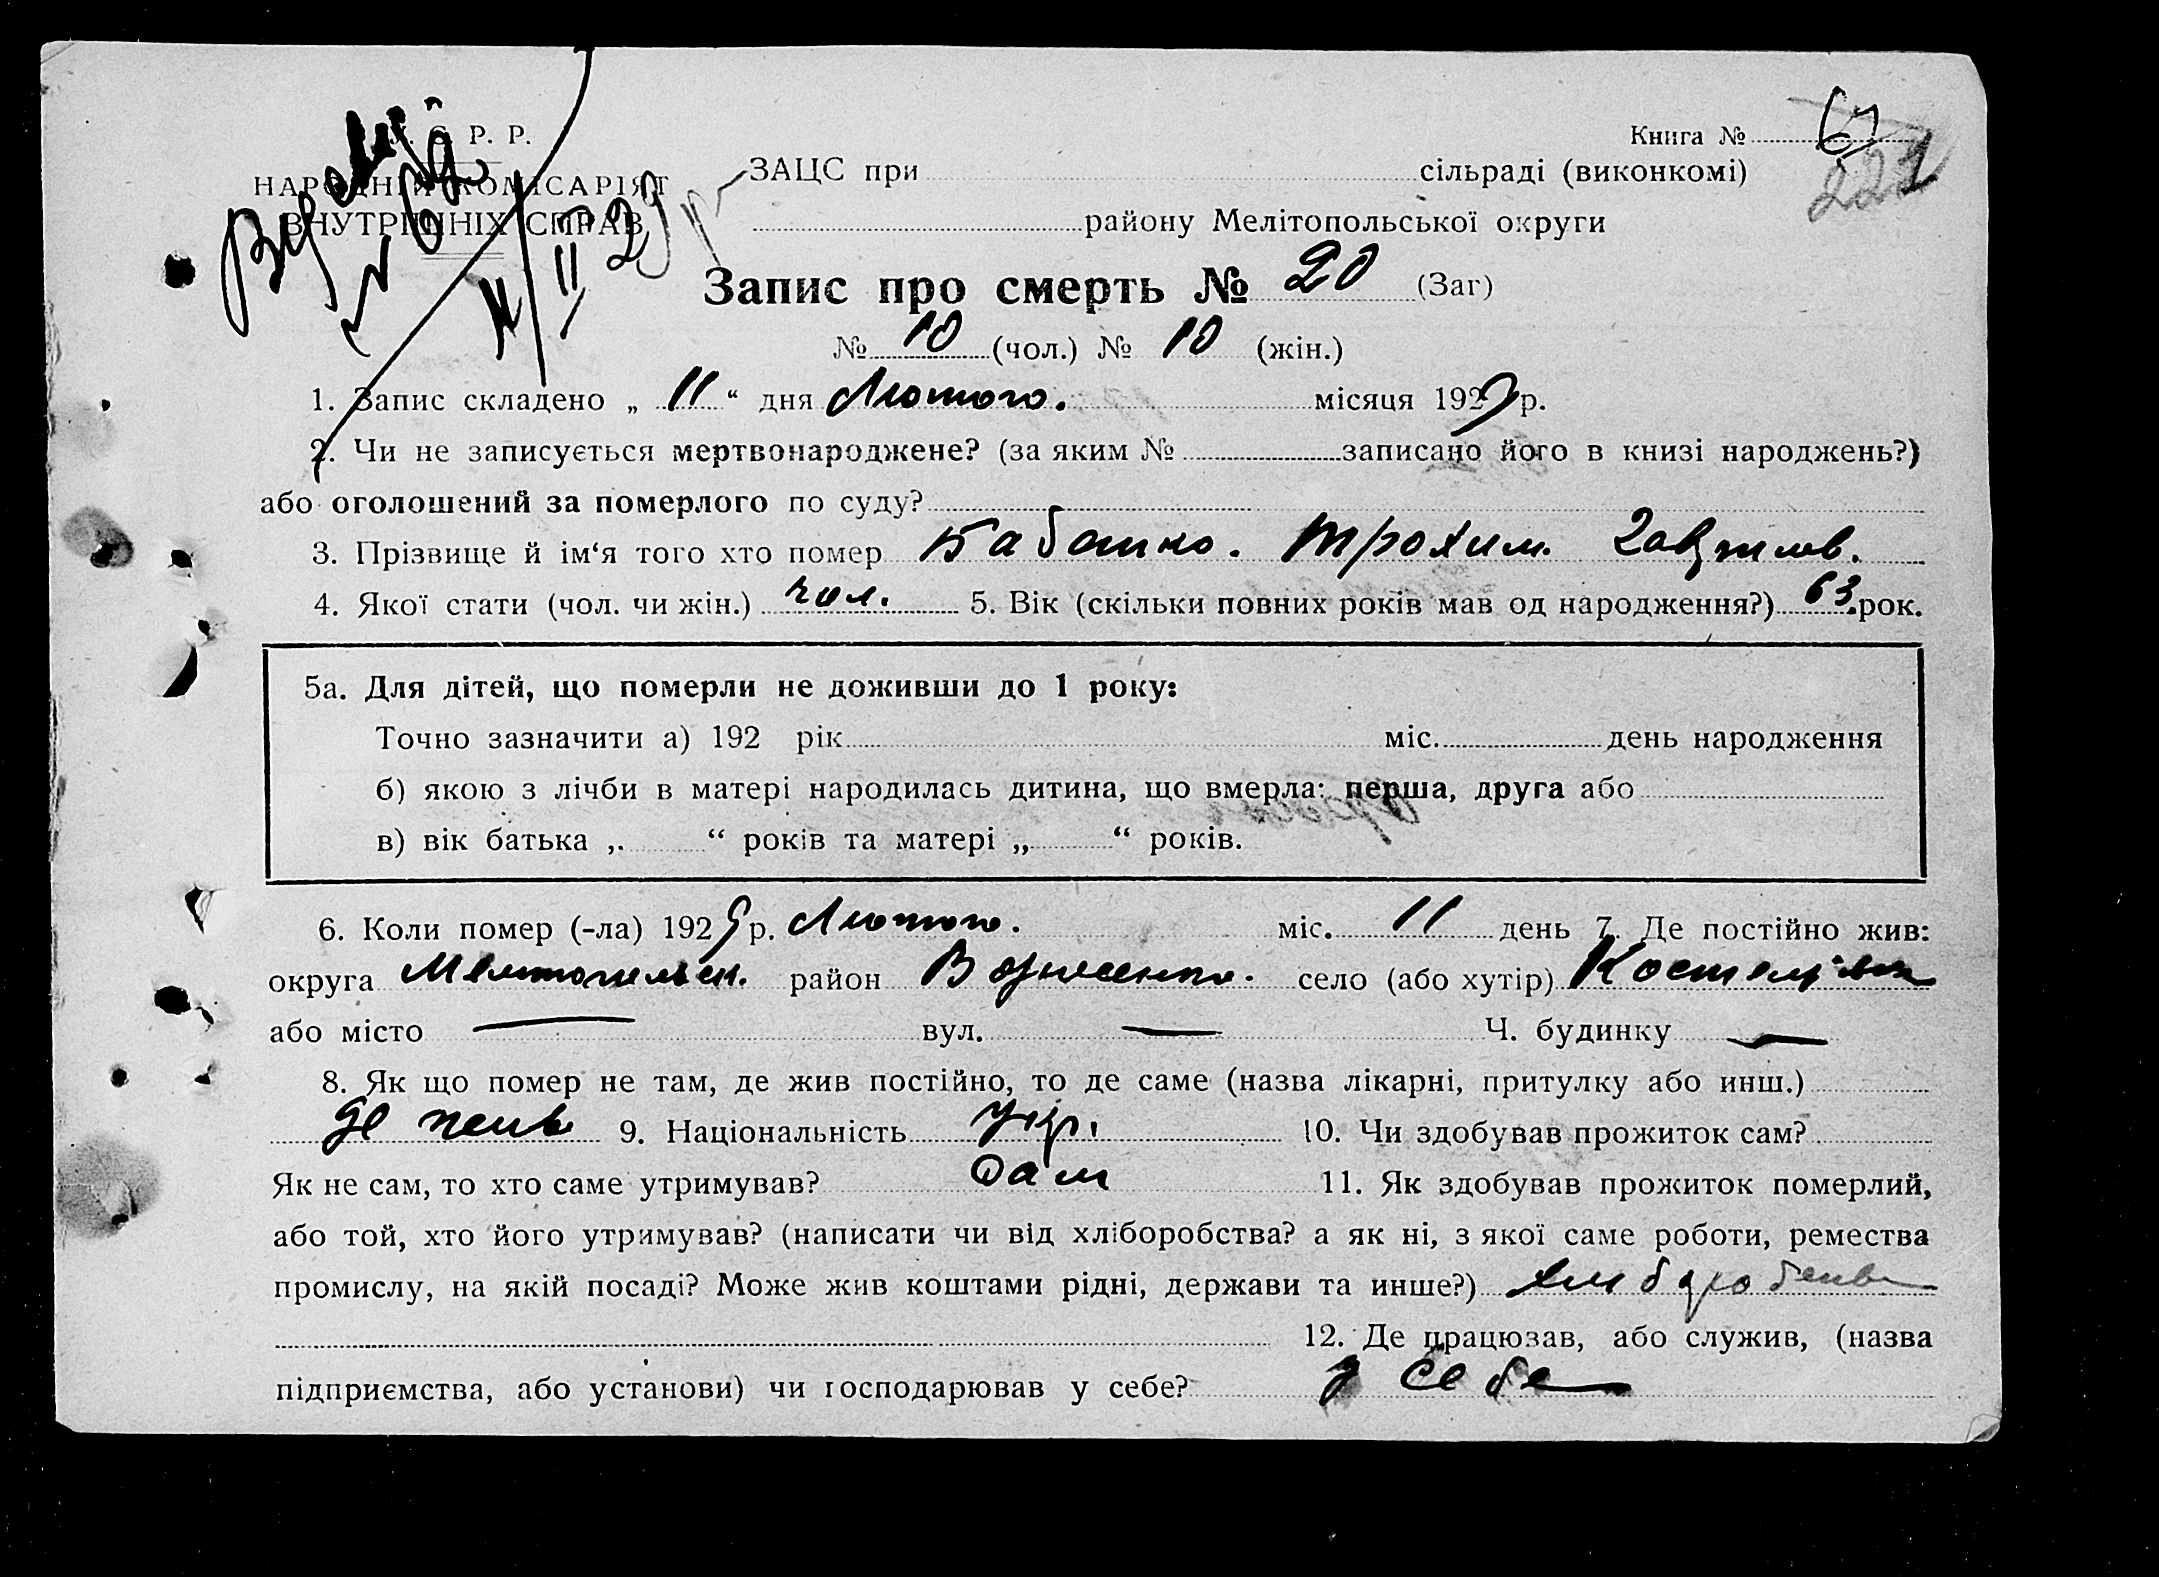 У. С. Р. Р.
НАРОДНІЙ КОМІСАРІЯТ
ВНУТРІШНІХ СПРАВ
11/II 29 р
Книга № 67
221
ЗАЦС при сільраді (виконкомі)
району Мелітопольської округи
Запис про смерть № 20 (Заг)
№ 10 (чол.) № 10 (жін.)
1. Запис складено „ 11 “ дня Лютого. місяця 1929 р.
2. Чи не записується мертвонароджене? (за яким № записано його в книзі народжень?)
або оголошений за померлого по суду?
3. Прізвище й ім‘я того хто помер Трохим.
4. Якої стати (чол. чи жін.) чол. 5. Вік (скільки повних років мав од народження?) 63 рок.
5а. Для дітей, що померли не доживши до 1 року:
Точно зазначити а) 192 рік міс. день народження
б) якою з лічби в матері народилась дитина, що вмерла: перша, друга або
в) вік батька „ “ років та матері „ “ років.
6. Коли помер (-ла) 1929 р. Лютого. міс. 11 день 7. Де постійно жив:
округа Мелітопільськ. район село (або хутір)
або місто — вул. — Ч. будинку —
8. Як що помер не там, де жив постійно, то де саме (назва лікарні, притулку або инш.)
де жив 9. Національність Укр. 10. Чи здобував прожиток сам?
Як не сам, то хто саме утримував? Сам 11. Як здобував прожиток померлий,
або той, хто його утримував? (написати чи від хліборобства? а як ні, з якої саме роботи, ремества
промислу, на якій посаді? Може жив коштами рідні, держави та инше?)
12. Де працював, або служив, (назва
підприємства, або установи) чи господарював у себе? у себе